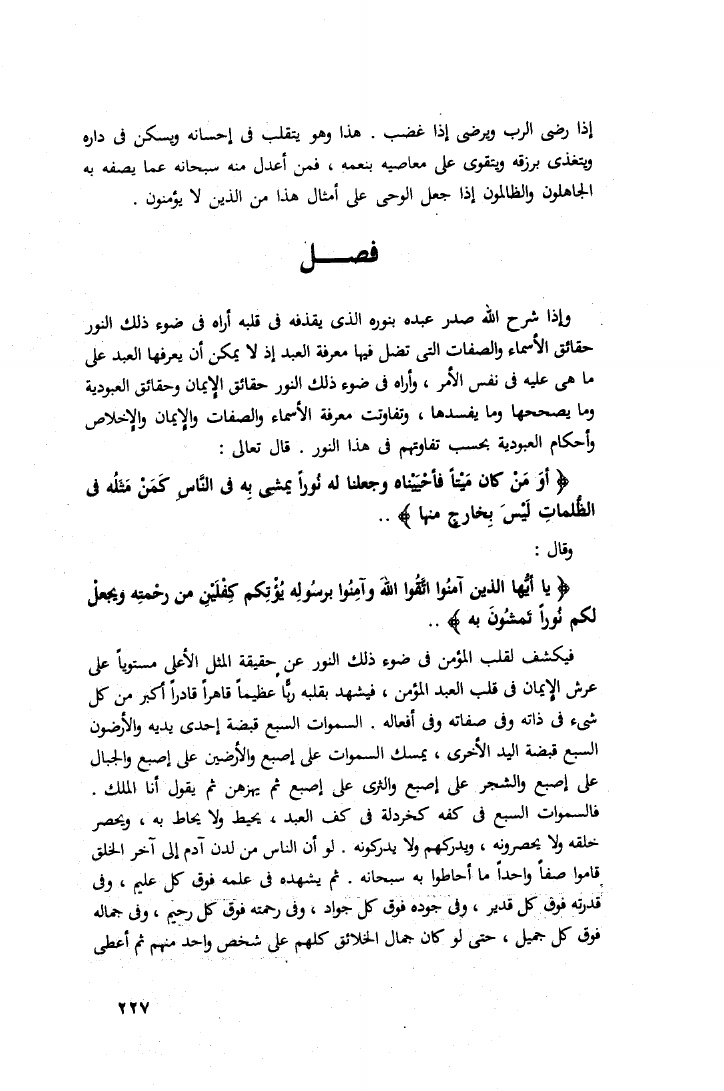 إذا رضى الرب ويرضى إذا غضب . هذا وهو يتقلب فى إحسانه ويسكن فى داره
ويتغذى برزقه ويتقوى على معاصيه بنعمه ، فمن أعدل منه سبحانه عما يصفه به
الجاهلون والظالمون إذا جعل الوحى على أمثال هذا من الذين لا يؤمنون .
فصــــل
وإذا شرح الله صدر عبده بنوره الذى يقذفه فى قلبه أراه فى ضوء ذلك النور
حقائق الأسماء والصفات التى تضل فيها معرفة العبد إذ لا يمكن أن يعرفها العبد على
ما هى عليه فى نفس الأمر ، وأراه فى ضوء ذلك النور حقائق الإيمان وحقائق العبودية
وما يصححها وما يفسدها ، وتفاوتت معرفة الأسماء والصفات والإيمان والإخلاص
وأحكام العبودية بحسب تفاوتهم فى هذا النور . قال تعالى :
﴿ أوَ مَنْ كان مَيْتاً فأحْيَيْناه وجعلنا له نُوراً يمشى بِه فى النَّاسِ كَمَنْ مَثَلُه فى
الظُّلماتِ لَيْسَ بِخارجٍ منها ﴾ ..
وقال :
﴿ يا أيُّها الذين آمنُوا اتَّقُوا اللهَ وآمِنُوا برسُولِه يُؤْتِكم كِفْلَيْنِ من رحْمتِه ويجعلْ
لكم نُوراً تَمشُونَ به ﴾ ..
فيكشف لقلب المؤمن فى ضوء ذلك النور عن حقيقة المثل الأعلى مستوياً على
عرش الإيمان فى قلب العبد المؤمن ، فيشهد بقلبه ربًّا عظيماً قاهراً قادراً أكبر من كل
شىء فى ذاته وفى صفاته وفى أفعاله . السموات السبع قبضة إحدى يديه والأرضون
السبع قبضة اليد الأخرى ، يمسك السموات على إصبع والأرضين على إصبع والجبال
على إصبع والشجر على إصبع والثرى على إصبع ثم يهزهن ثم يقول أنا الملك .
فالسموات السبع فى كفه كخردلة فى كف العبد ، يحيط ولا يحاط به ، ويحصر
خلقه ولا يحصرونه ، ويدركهم ولا يدركونه . لو أن الناس من لدن آدم إلى آخر الخلق
قاموا صفاً واحداً ما أحاطوا به سبحانه . ثم يشهده فى علمه فوق كل عليم ، وفى
قدرته فوق كل قدير ، وفى جوده فوق كل جواد ، وفى رحمته فوق كل رحيم ، وفى جماله
فوق كل جميل ، حتى لو كان جمال الخلائق كلهم على شخص واحد منهم ثم أعطى
٢٢٧